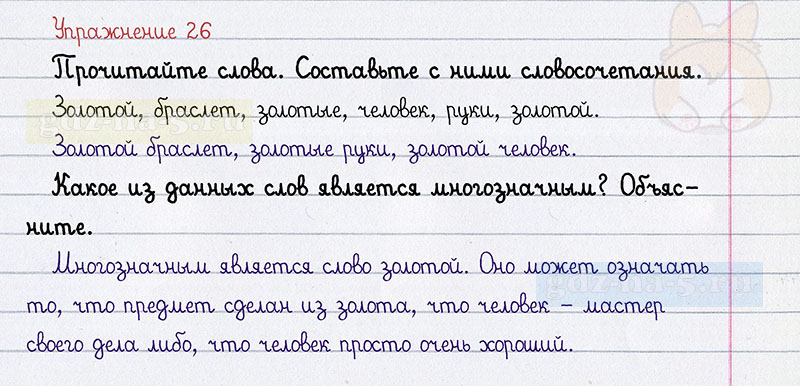 Упражнение 26
Прочитайте слова. Составьте с ними словосочетания.
Золотой, браслет, золотые, человек, руки, золотой.
Золотой браслет, золотые руки, золотой человек.
Какое из данных слов является многозначным? Объяс-
ните.
Многозначным является слово золотой. Оно может означать
то, что предмет сделан из золота, что человек – мастер
своего дела либо, что человек просто очень хороший.